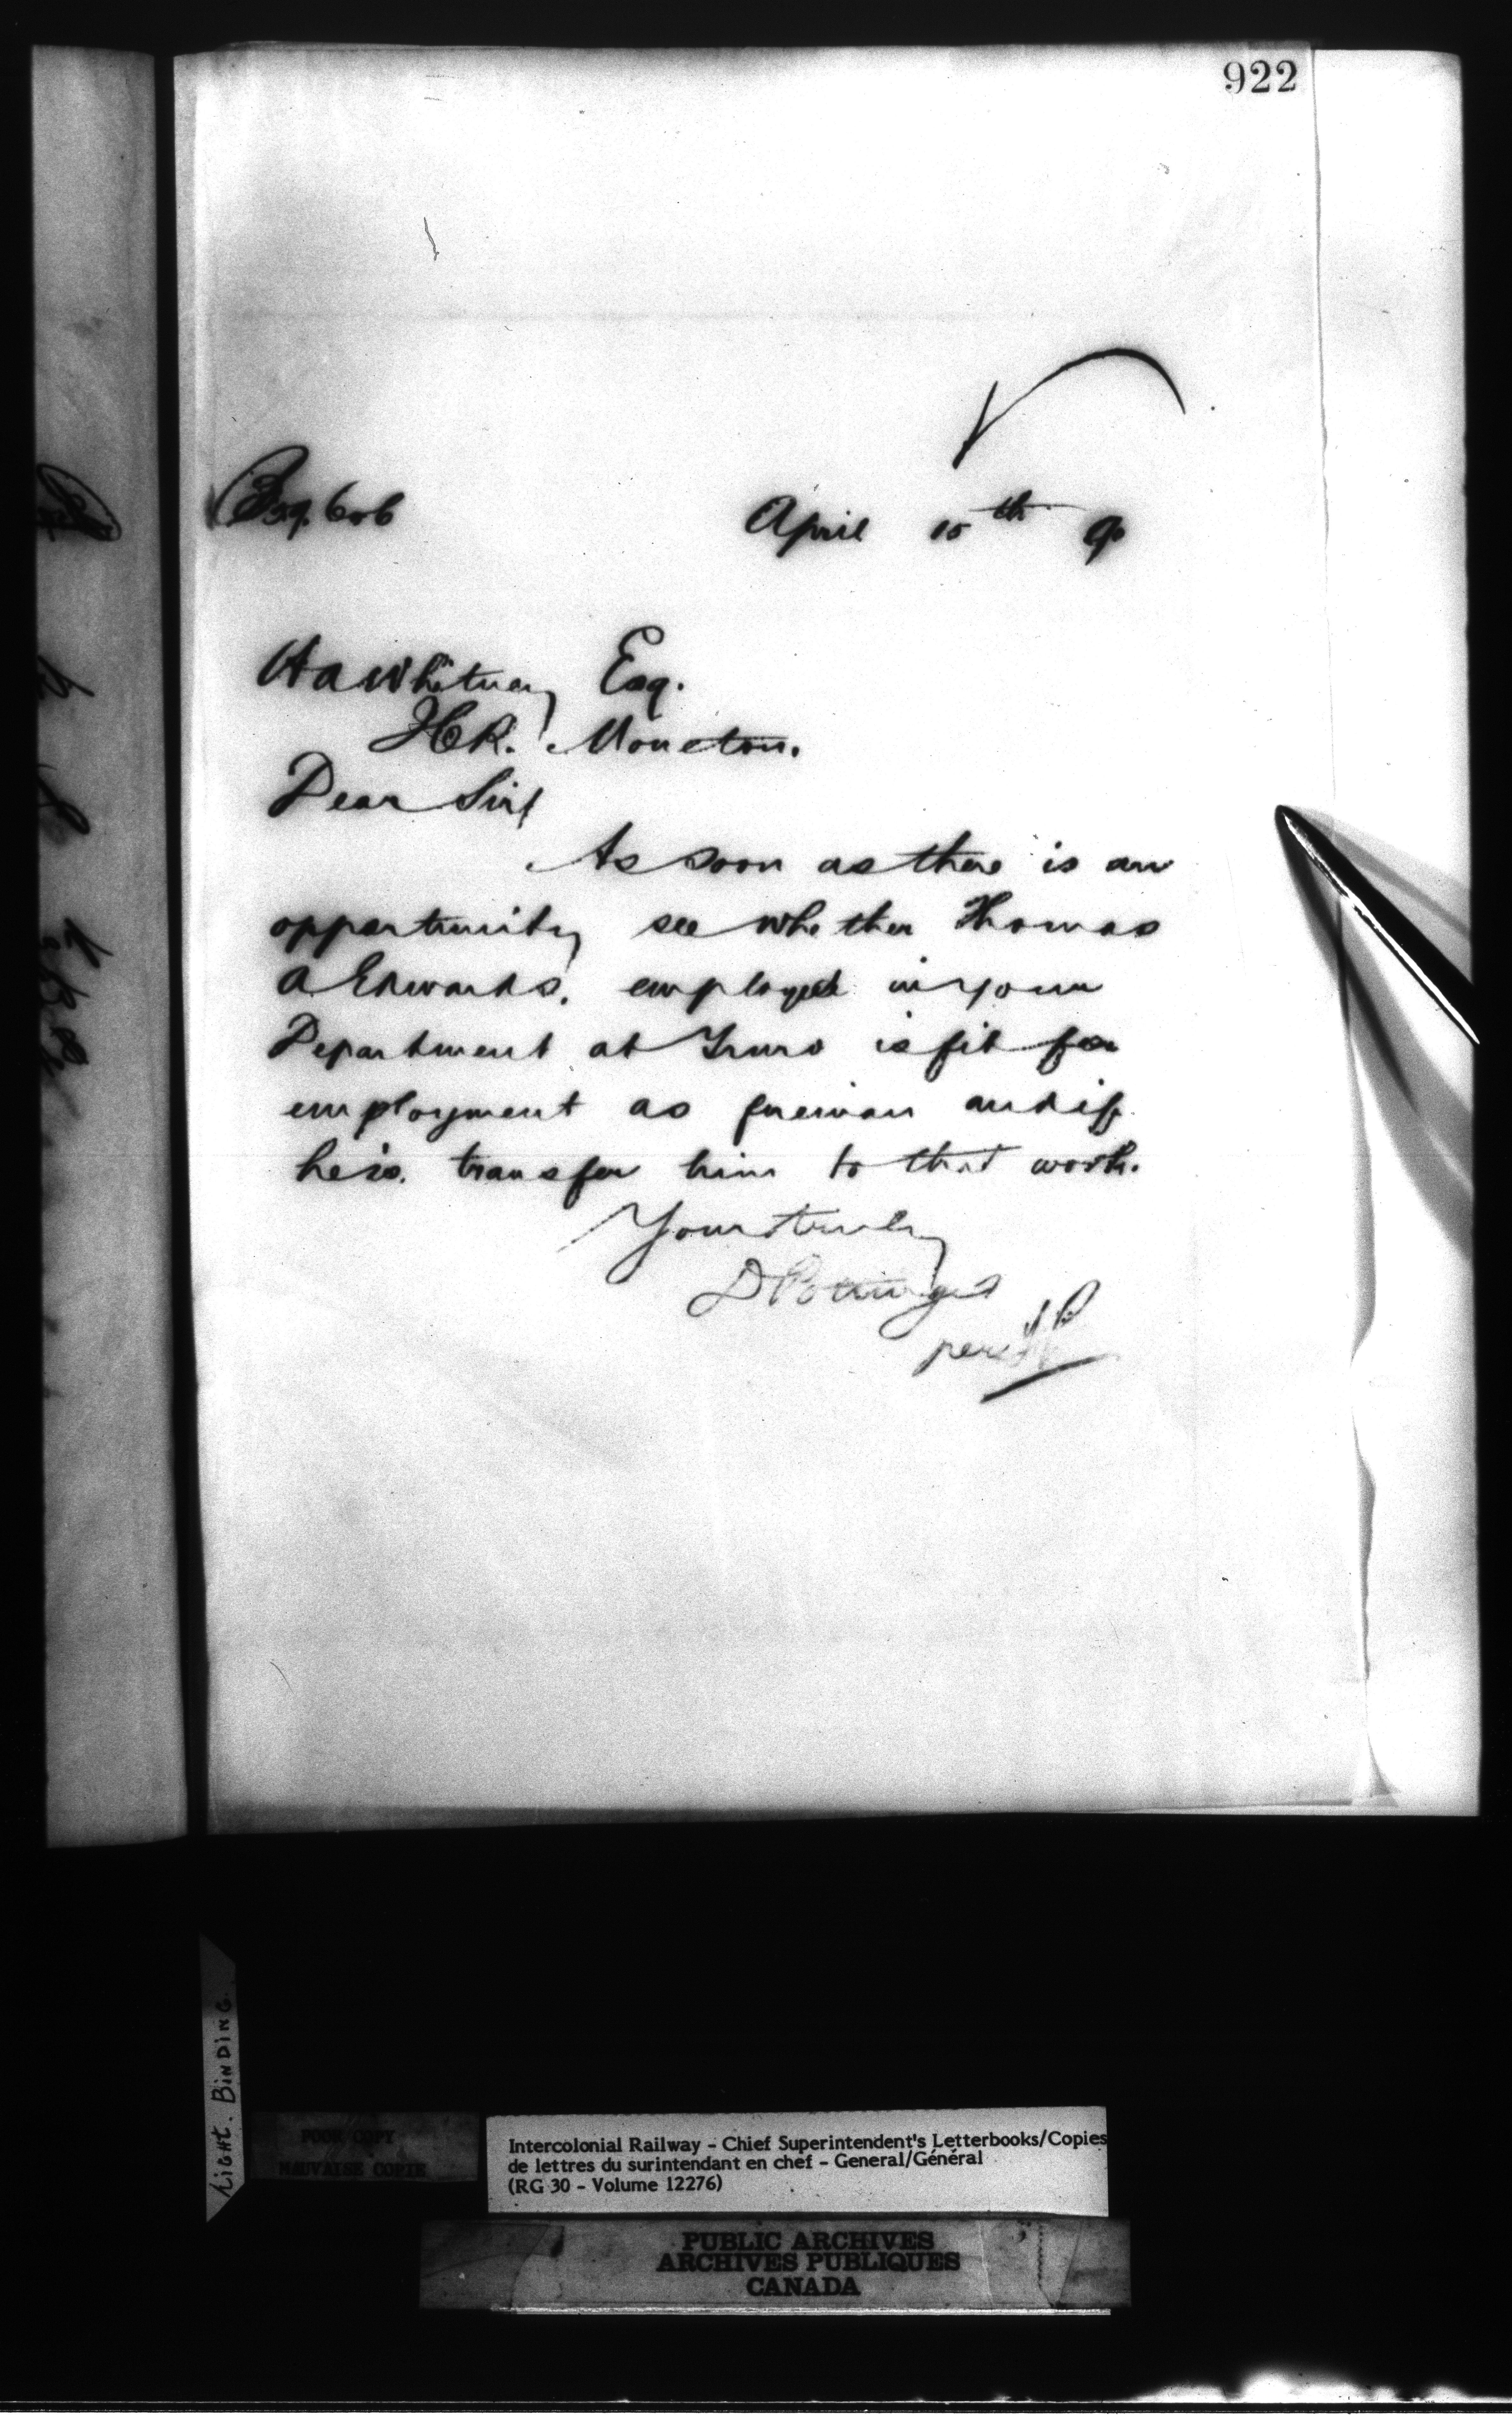 922
April 15th 90
HA Whitney Esq.
ICR. Moncton.
Dear Sir/
As soon as there is an
opportunity see whether Thomas
A Edwards, employed in your
Department at Truro is fit for
employment as fireman and if
he is, transfer him to that work.
Yours truly
D Pottinger
per
LIGHT. BINDING.
POOR COPY
MAUVAISE COPIE
Intercolonial Railway - Chief Superintendent's Letterbooks/Copies
de lettres du surintendant en chef - General/Général
(RG 30 - Volume 12276)
PUBLIC ARCHIVES
ARCHIVES PUBLIQUES
CANADA